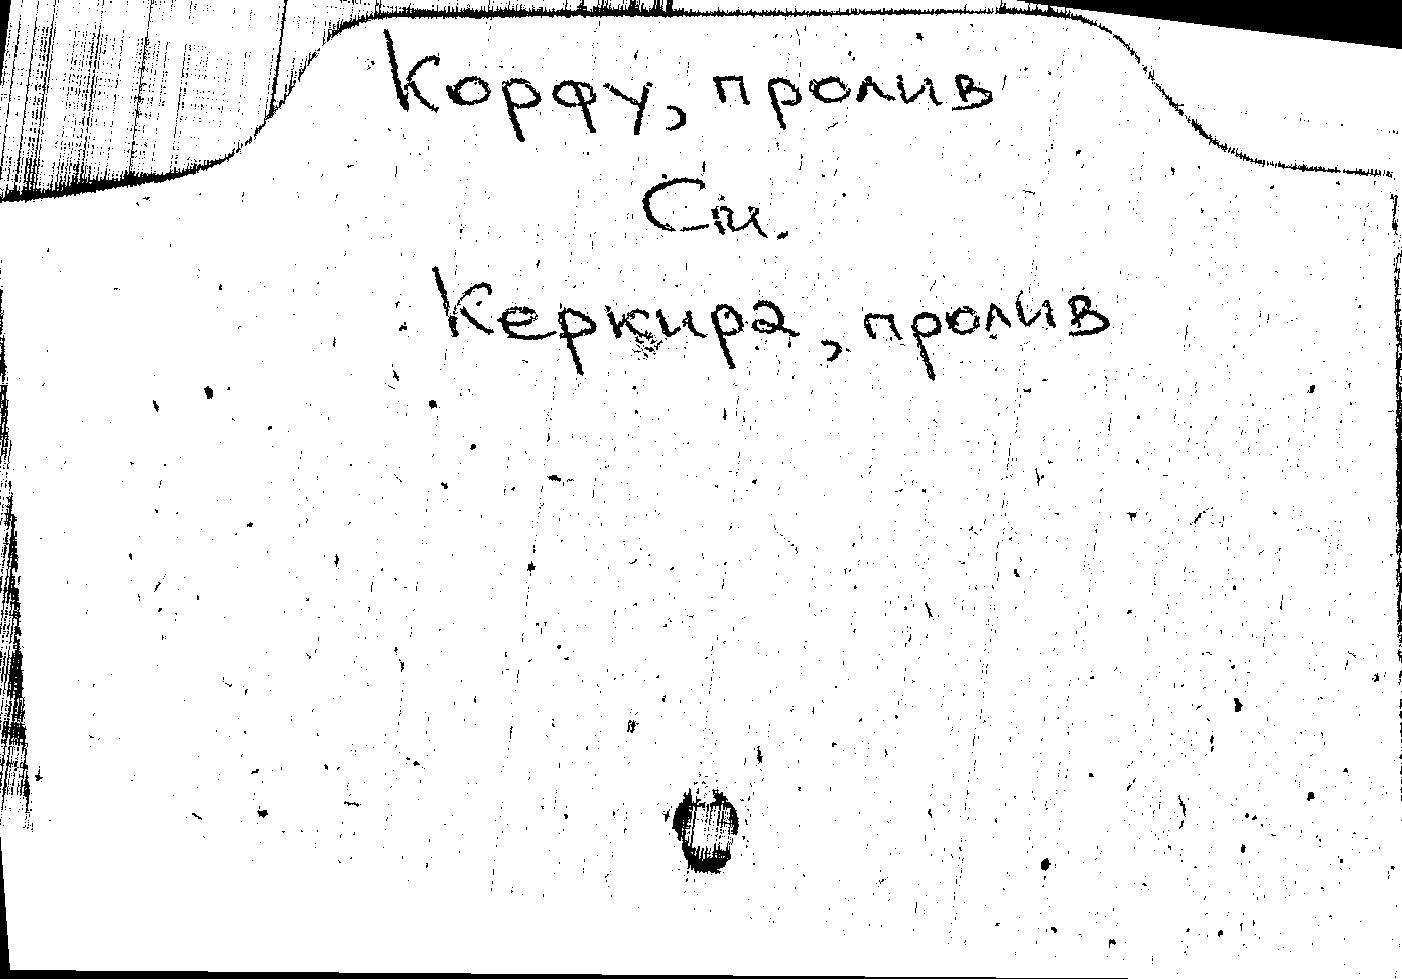 Корфу, пролив
См.
Керкира, пролив